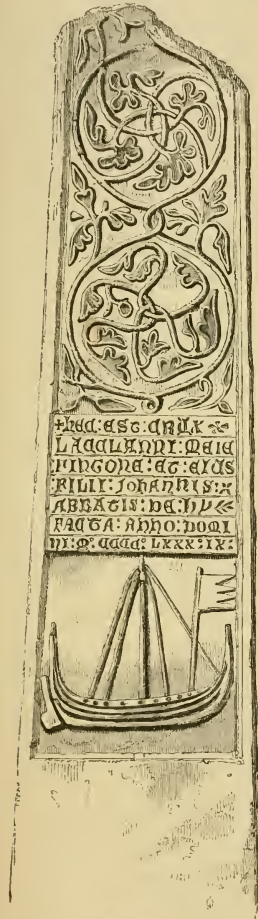 +hec:est:crux
Lacclanni:meic
fingone:et:eius
filii:Johannis:
Abbatis:de:hy
facta:anno:domi
ni:mº:cccc:lxxx:ix: